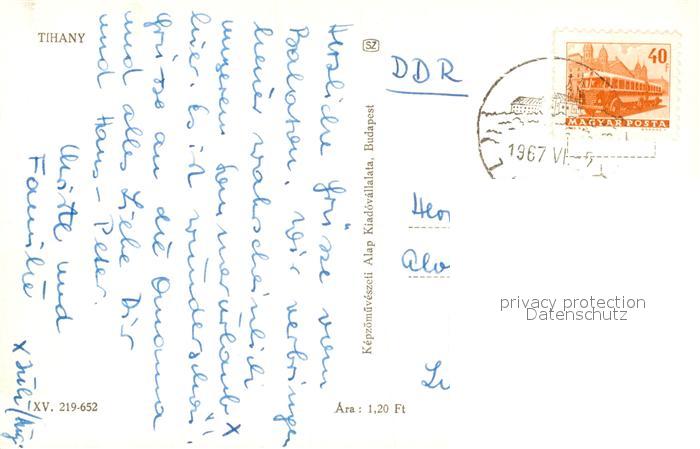 TIHANY
Herzliche Grüsse vom
Balaton. Wir verbringen
hier wahrscheinlich
unseren Sommerurlaub x
hier. Es ist wunderschön!
Grüsse an die Omama
und alles Liebe Dir
und Hans-Peter.
und
Familie
x Juli/Aug.
XV. 219-652
Ára: 1,20 Ft
SZ
Képzőművészeti Alap Kiadóvállalata, Budapest
DDR
40f
MAGYAR POSTA
1967 VI
Her
privacy protection
Datenschutz